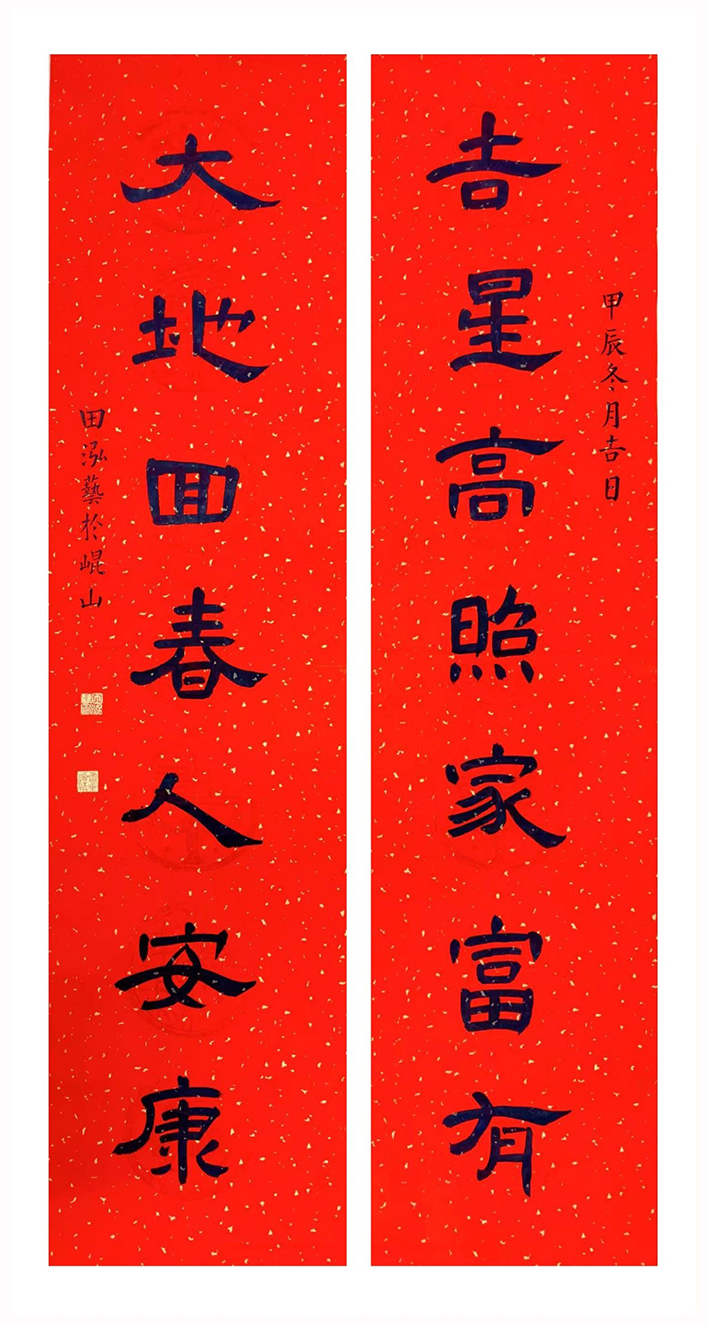 甲辰冬月吉日
吉星高照家富有
大地回春人安康
田泓藝於崐山